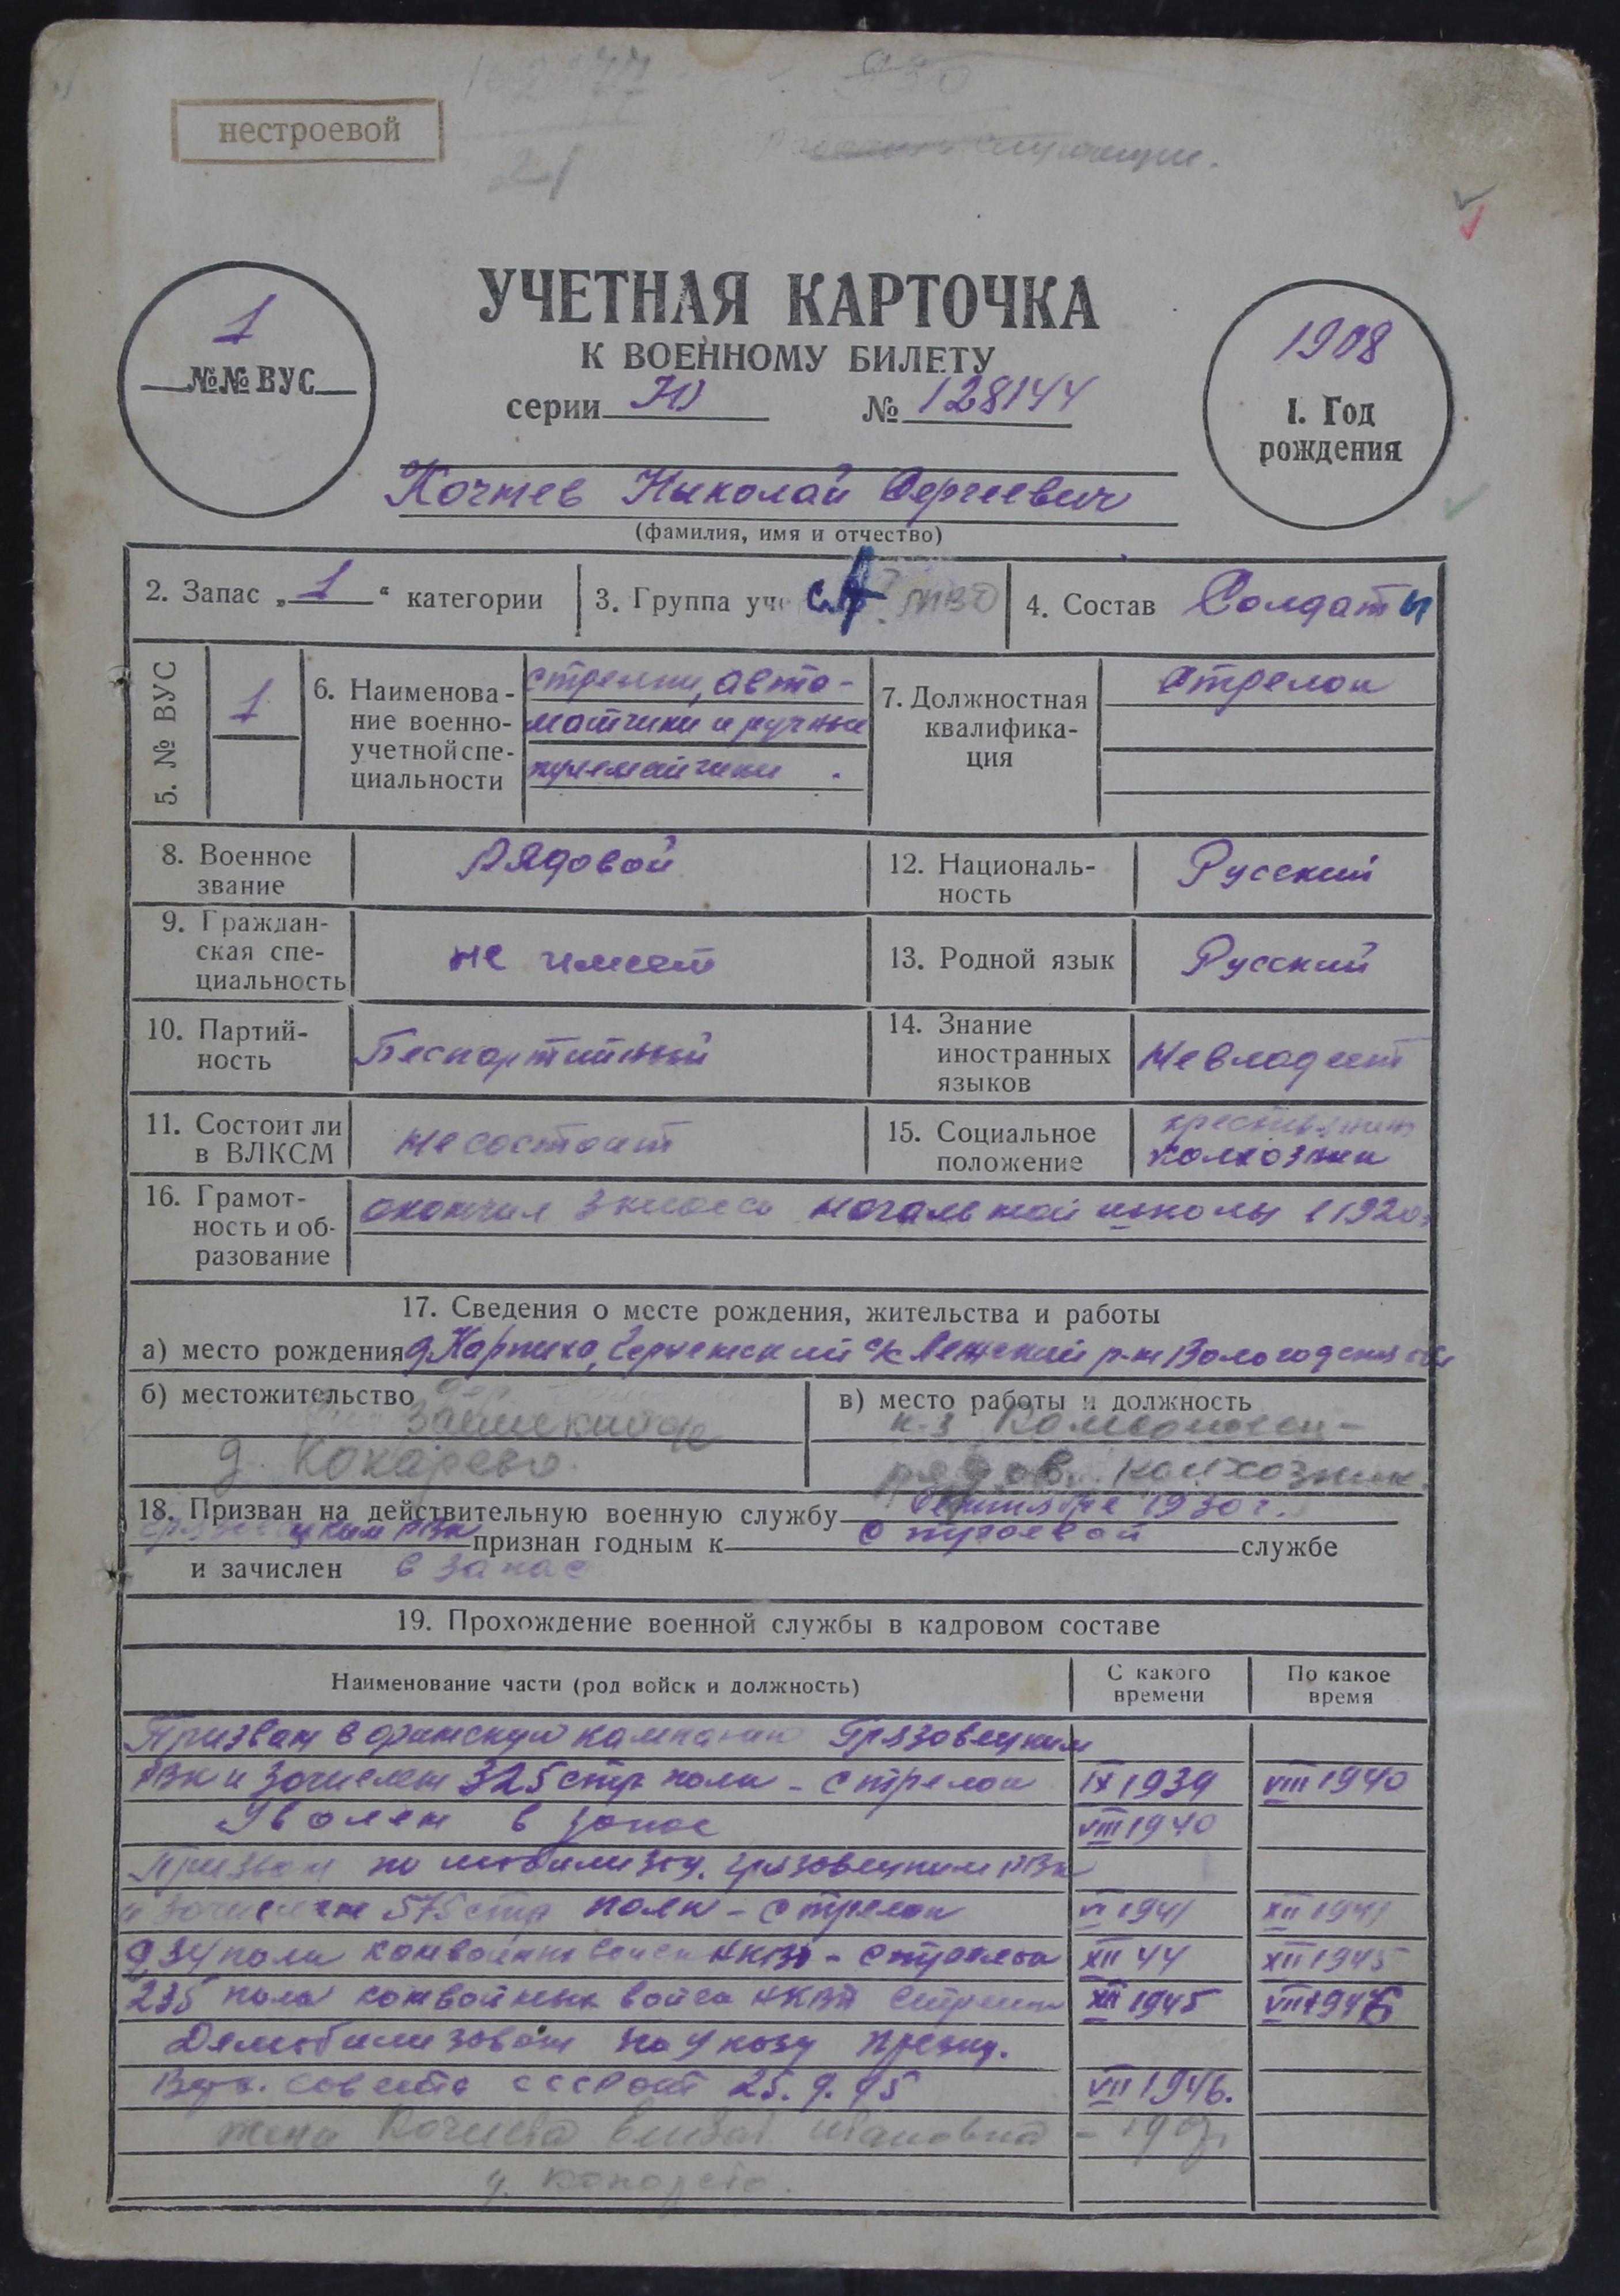 нестроевой
УЧЕТНАЯ КАРТОЧКА
К ВОЕННОМУ БИЛЕТУ
серии Ю № 128144
1
№№ ВУС
1908
1. Год
рождения
Кочнев Николай Сергеевич
(фамилия, имя и отчество)
2. Запас „1“ категории
3. Группа уч
4. Состав Солдаты
5. № ВУС
1
6. Наименова-
ние военно-
учетной спе-
циальности
стрелки, авто-
матчики и ручные
пулеметчики
7. Должностная
квалифика-
ция
стрелок
8. Военное
звание
Рядовой
12. Националь-
ность
Русский
9. Граждан-
ская спе-
циальность
не имеет
13. Родной язык
Русский
10. Партий-
ность
Беспартийный
14. Знание
иностранных
языков
Не владеет
11. Состоит ли
в ВЛКСМ
не состоит
15. Социальное
положение
колхозник
16. Грамот-
ность и об-
разование
окончил 3 класса начальной школы в 1920г
17. Сведения о месте рождения, жительства и работы
а) место рождения д. р-н Вологодская обл
б) местожительство
д. Кокарево
в) место работы и должность
к-з
рядов. колхозник
18. Призван на действительную военную службу Сентября 1930 г.
РВК признан годным к строевой службе
и зачислен в запас
19. Прохождение военной службы в кадровом составе
Наименование части (род войск и должность)
С какого
времени
По какое
время
Призван в финскую кампанию Грязовецким
РВК и зачислен 325 стр полк - стрелок IX 1939 VIII 1940
Уволен в запас VIII 1940
Призван по мобилизац. Грязовецким РВК
и зачислен 575 стр полк - стрелок VI 1941 XII 1941
934 полк конвойных войск НКВД - стрелок XII 44 XII 1945
235 полк конвойных войск НКВД стрелок XII 1945 VII 1946
Демобилизован по Указу Презид.
Верх. Совета СССР от 25.9.45 VII 1946.
жена Кочнева Ивановна
д. Кокарево